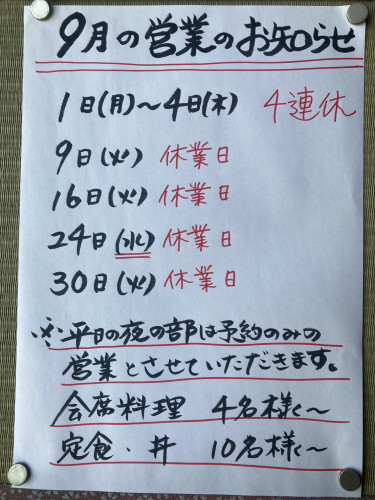 9月の営業のお知らせ
1日(月)～4日(木) 4連休
9日(火) 休業日
16日(火) 休業日
24日(水) 休業日
30日(火) 休業日
※平日の夜の部は予約のみの
営業とさせていただきます。
会席料理 4名様く～
定食・丼 10名様く～